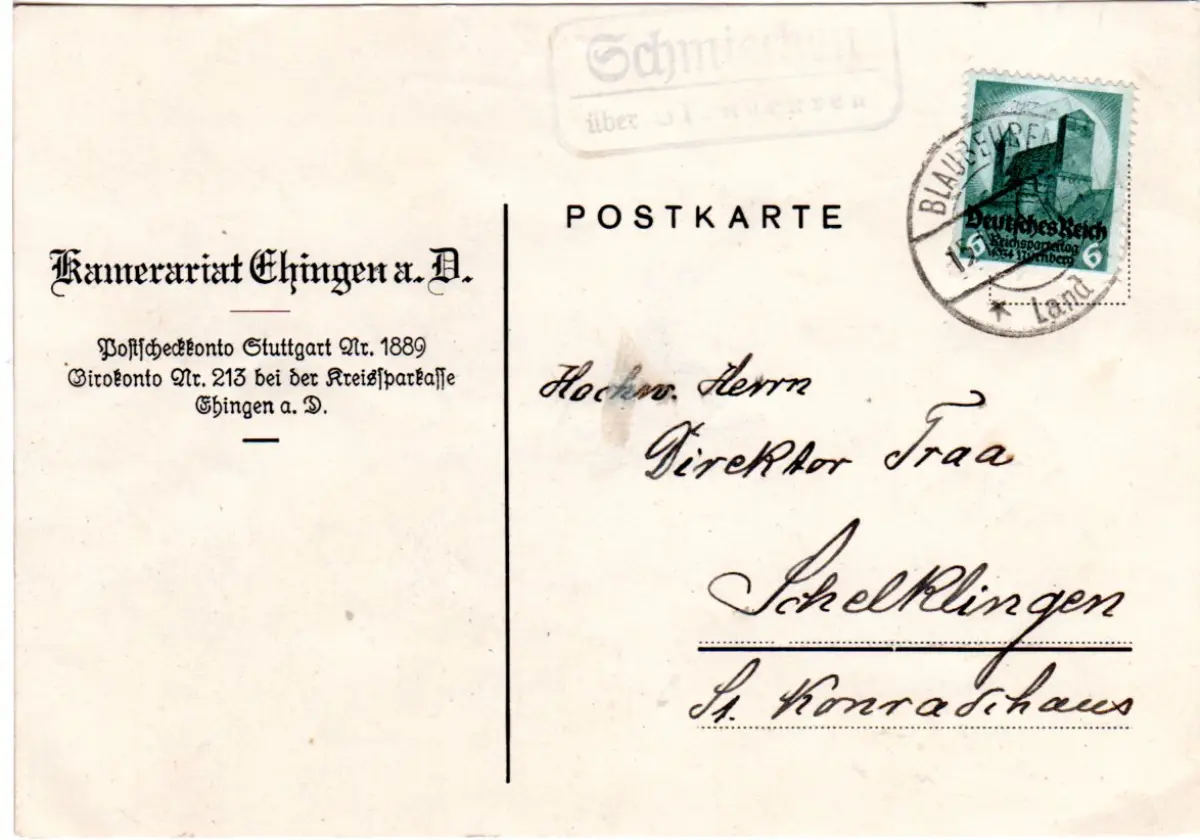 Schmiechen
über Blaubeuren
POSTKARTE
BLAUBEUREN
Land
Deutsches Reich
Reichsparteitag
1934 Nürnberg
6 6
Kamerariat Ehingen a. D.
Postscheckkonto Stuttgart Nr. 1889
Girokonto Nr. 213 bei der Kreissparkasse
Ehingen a. D.
Hochw. Herrn
Direktor Traa
Schelklingen
St. Konradihaus